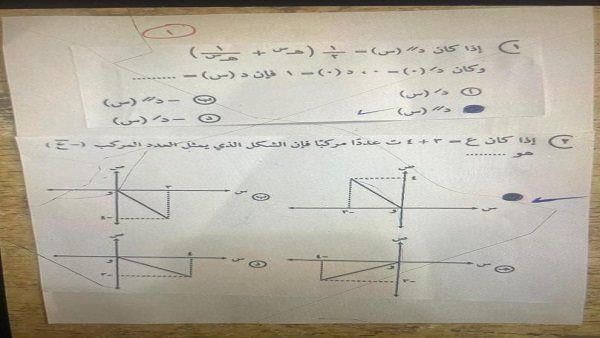 ١
١ إذا كان د″(س) = ١/٢ (هـ^س + ١/هـ^س)
وكان د′(٠) = ٠، د(٠) = ١ فإن د(س) = .........
أ د′(س) ب – د″(س)
د″(س) د – د′(س)
٢ إذا كان ع = ٣ + ٤ ت عددًا مركبًا فإن الشكل الذي يمثل العدد المركب (–ع̅)
هو .........
ص ٤ ٣– و س
ب ص و ٣ س ٤–
جـ ص ٤– و س ٣–
د ص و ٤ س ٣–